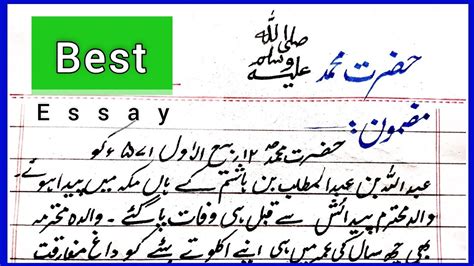 Best
Essay
حضرت محمد صلی اللہ علیہ وسلم
مضمون:
حضرت محمدؐ ۱۲ ربیع الاول ۵۷۱ء کو
عبداللہ بن عبدالمطلب بن ہاشم کے ہاں مکہ میں پیدا ہوئے۔
والد محترم پیدائش سے قبل ہی وفات پا گئے۔ والدہ محترمہ
بھی چھ سال کی عمر میں ہی اپنے اکلوتے بیٹے کو داغ مفارقت